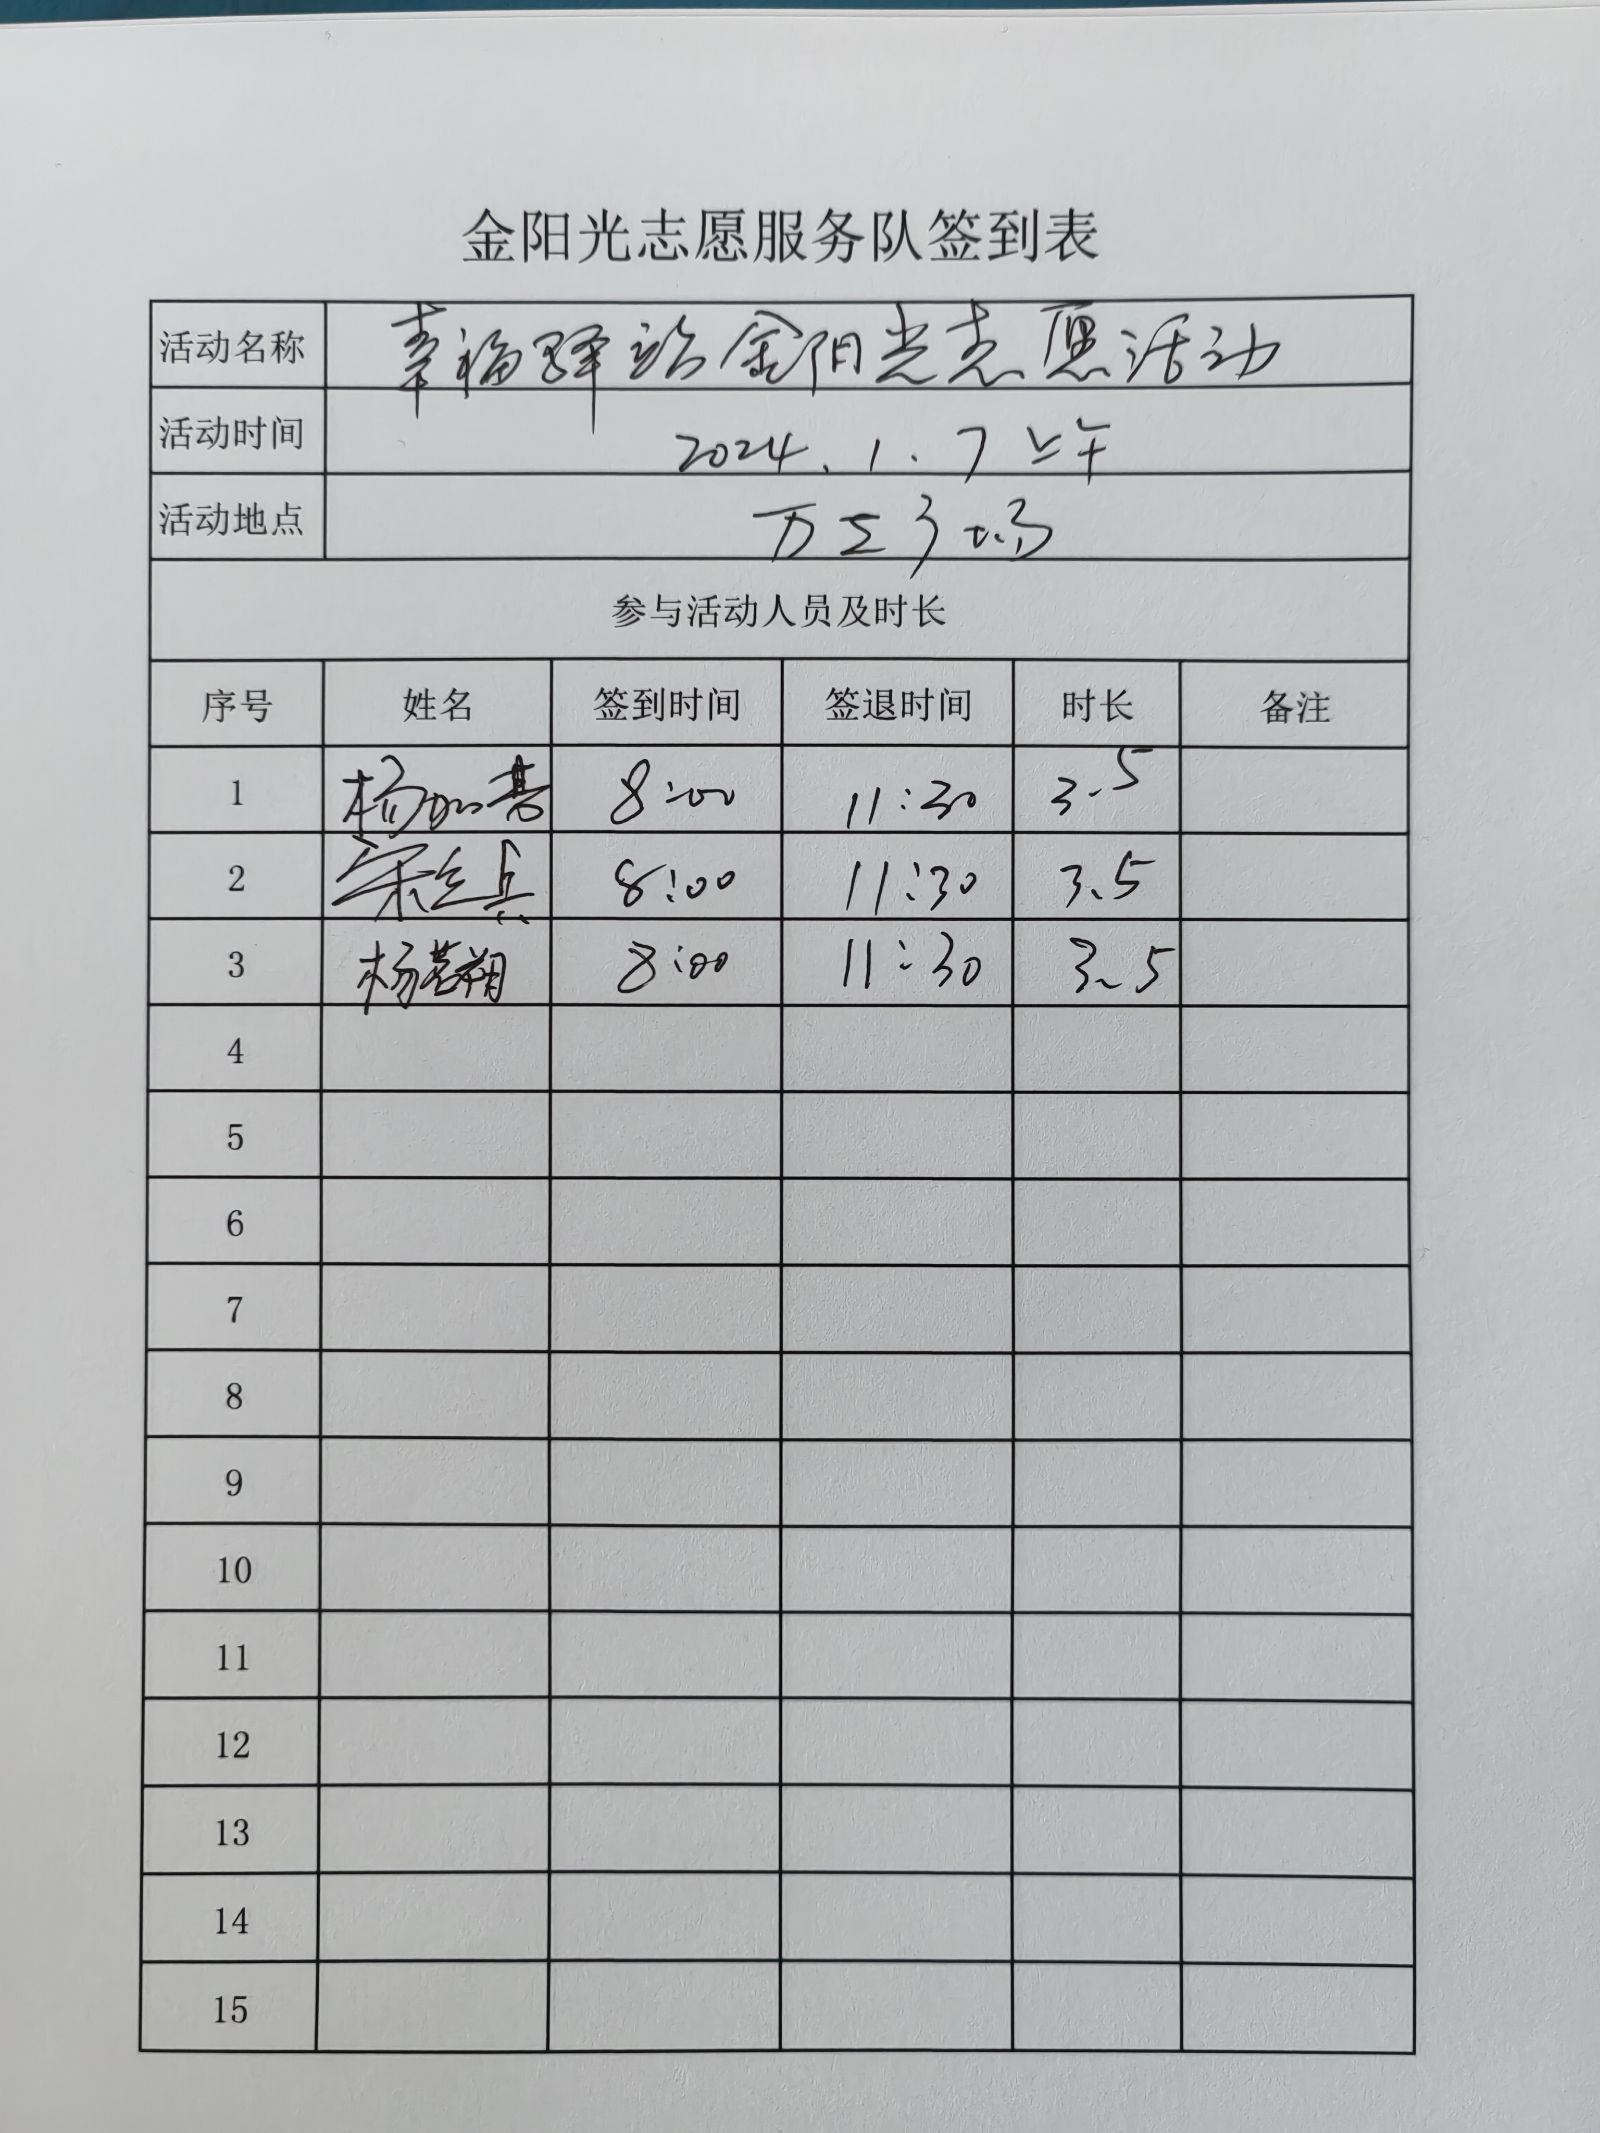 金阳光志愿服务队签到表
活动名称 幸福驿站金阳光志愿活动
活动时间 2024.1.7 上午
活动地点 万达广场
参与活动人员及时长
序号 姓名 签到时间 签退时间 时长 备注
1 杨 8:00 11:30 3.5
2 宋立兵 8:00 11:30 3.5
3 杨若翔 8:00 11:30 3.5
4
5
6
7
8
9
10
11
12
13
14
15